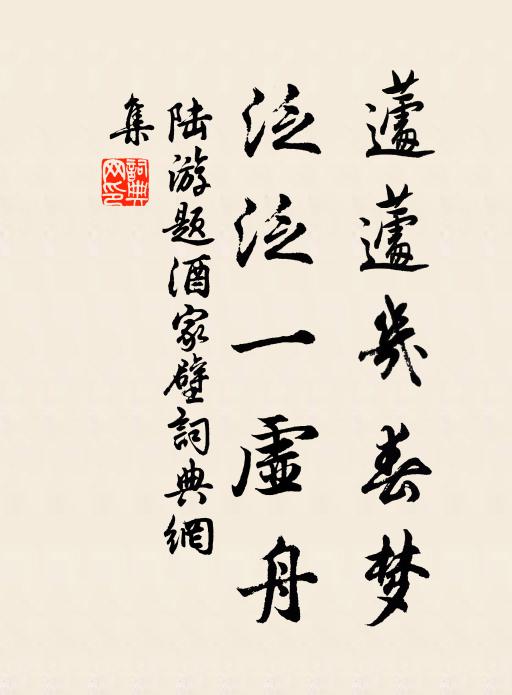 蘧蘧几春梦
泛泛一虚舟
陆游题酒家壁詞典網
集
詞典
网印